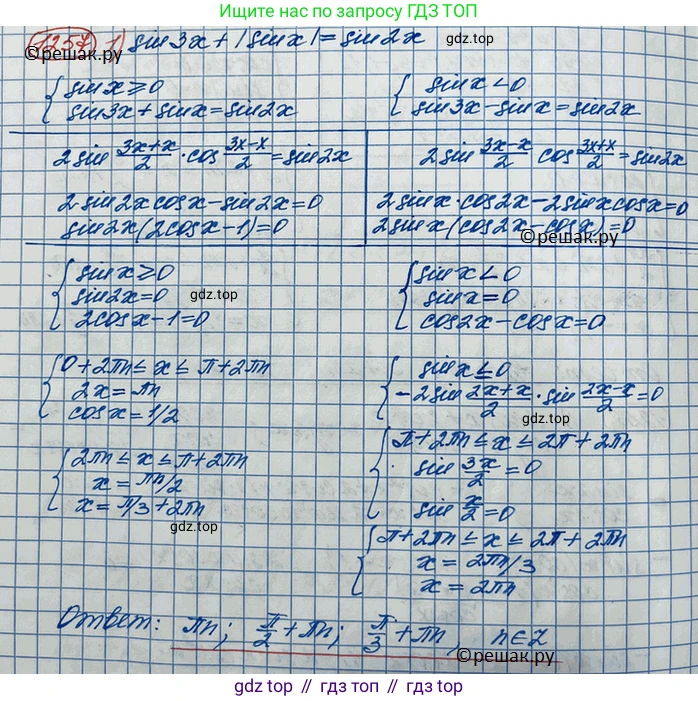 Ищите нас по запросу ГДЗ ТОП
1257 1) sin3x+|sinx|=sin2x
©решак.ру
{ sinx≥0
sin3x+sinx=sin2x
{ sinx<0
sin3x-sinx=sin2x
2sin (3x+x)/2 · cos (3x-x)/2 = sin2x
2sin2xcosx-sin2x=0
sin2x(2cosx-1)=0
2sin (3x-x)/2 cos (3x+x)/2 = sin2x
2sinx·cos2x-2sinxcosx=0
2sinx(cos2x-cosx)=0
©решак.ру
{ sinx≥0
sin2x=0
2cosx-1=0
gdz.top
{ sinx<0
sinx=0
cos2x-cosx=0
gdz.top
{ 0+2πn≤x≤π+2πn
2x=πn
cosx=1/2
{ sinx≤0
-2sin (2x+x)/2 · sin (2x-x)/2 =0
©решак.ру
{ 2πn≤x≤π+2πn
x=πn/2
x=π/3+2πn
gdz.top
{ π+2πn≤x≤2π+2πn
sin 3x/2 =0
sin x/2 =0
gdz.top
{ π+2πn≤x≤2π+2πn
x=2πn/3
x=2πn
Ответ: πn; π/2+πn; π/3+πn, n∈Z
©решак.ру
gdz top // гдз топ // gdz.top